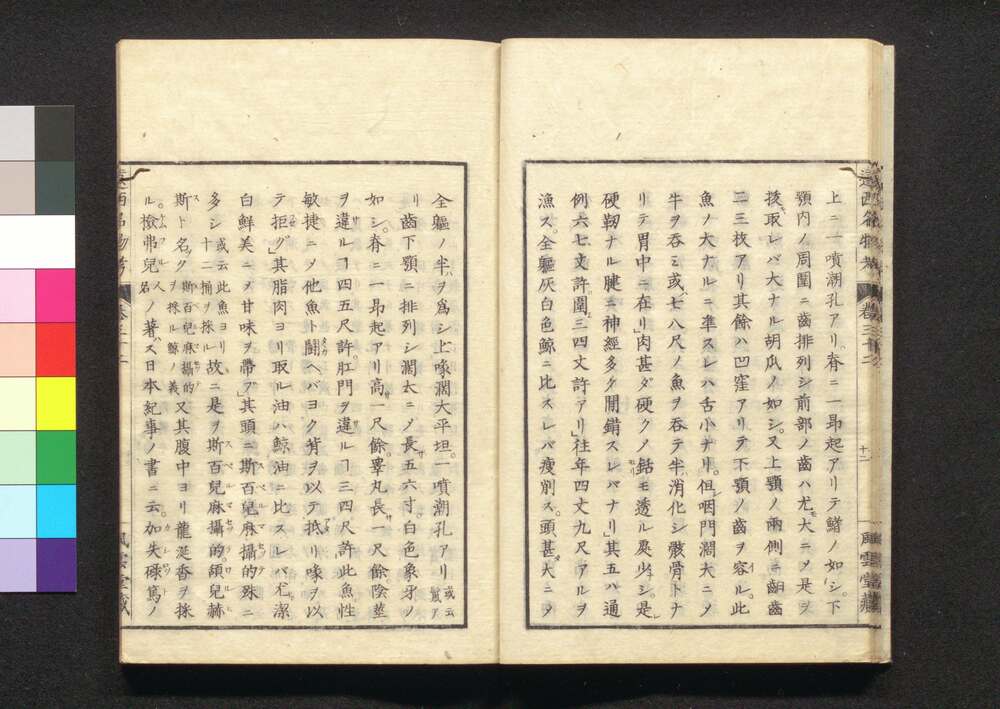 上ニ一噴潮孔アリ。脊ニ一昻起アリテ鰭ノ如シ。下
顎内ノ周圍ニ齒排列シ前部ノ齒ハ尤大ニメ是ヲ
拔取レバ大ナル胡瓜ノ如シ。又上顎ノ兩側ニ齒
二三枚アリ其餘ハ凹窪アリテ下顎ノ齒ヲ容ル。此
魚ノ大ナルニ準スレハ舌小ナリ。但咽門濶大ニメ
牛ヲ吞ミ或七八尺ノ魚ヲ吞テ半消化シ骸骨トナ
リテ胃中ニ在リ肉甚ダ硬クメ銛モ透ル夓少シ。是
硬韌ナル腱ニ神經多ク關鎖スレバナリ」其五ハ通
例六七丈許圍三四丈許アリ」往年四丈九尺アルヲ
漁ス。全軀灰白色鯨ニ比スレバ瘦削ス。頭甚大ニメ
十二
風雲堂藏
全軀ノ半ヲ爲シ上喙濶大平坦。一噴潮孔アリ或云
リ齒下顎ニ排列シ濶大ニメ長五六寸白色象牙ノ
如シ。脊ニ一昻起アリ高一尺餘。睾丸長一尺餘陰莖
ヲ違ルヿ四五尺許。肛門ヲ違ルヿ三四尺許此魚性
敏捷ニメ他魚ト鬪ヘバヨク背ヲ以テ抵リ喙ヲ以
テ拒グ」其脂肉ヨリ取ル油ハ鯨油ニ比スレバ尤潔
白鮮美ニメ甘味ヲ帶ブ」其頭ニ斯百兒麻攝的殊ニ
多シ或云此魚ヨリ十二桶ヲ採ル故ニ是ヲ斯百兒麻攝的頷兒赫
斯ト名ク斯百兒麻攝的ヲ採ル鯨ノ義又其腹中ヨリ龍涎香ヲ採
ル。撿弗兒人名ノ著ス日本紀事ノ書ニ云。加失碌篤ノ